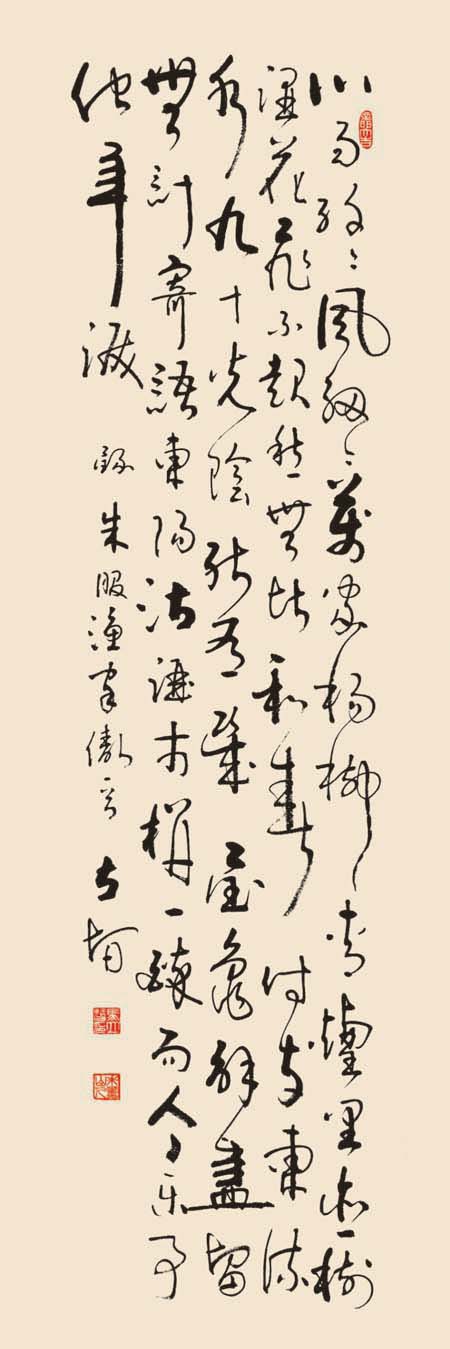 小雨纖纖風細細萬家楊柳青煙里戀樹
濕花飛不起愁無比和春付與東流
水九十光陰能有幾金龜解盡留
無計寄語東陽沽酒市拚一醉而今樂事
他年淚
錄朱服漁家傲